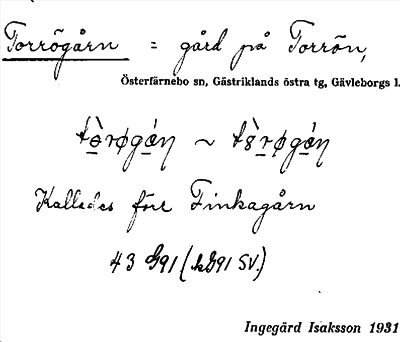 Torrögårn = gård på Torrön,
Österfärnebo sn, Gästriklands östra tg, Gävleborgs l.
~
Kallades förr Finkagårn
43 G91 (kG91 SV.)
Ingegärd Isaksson 1931